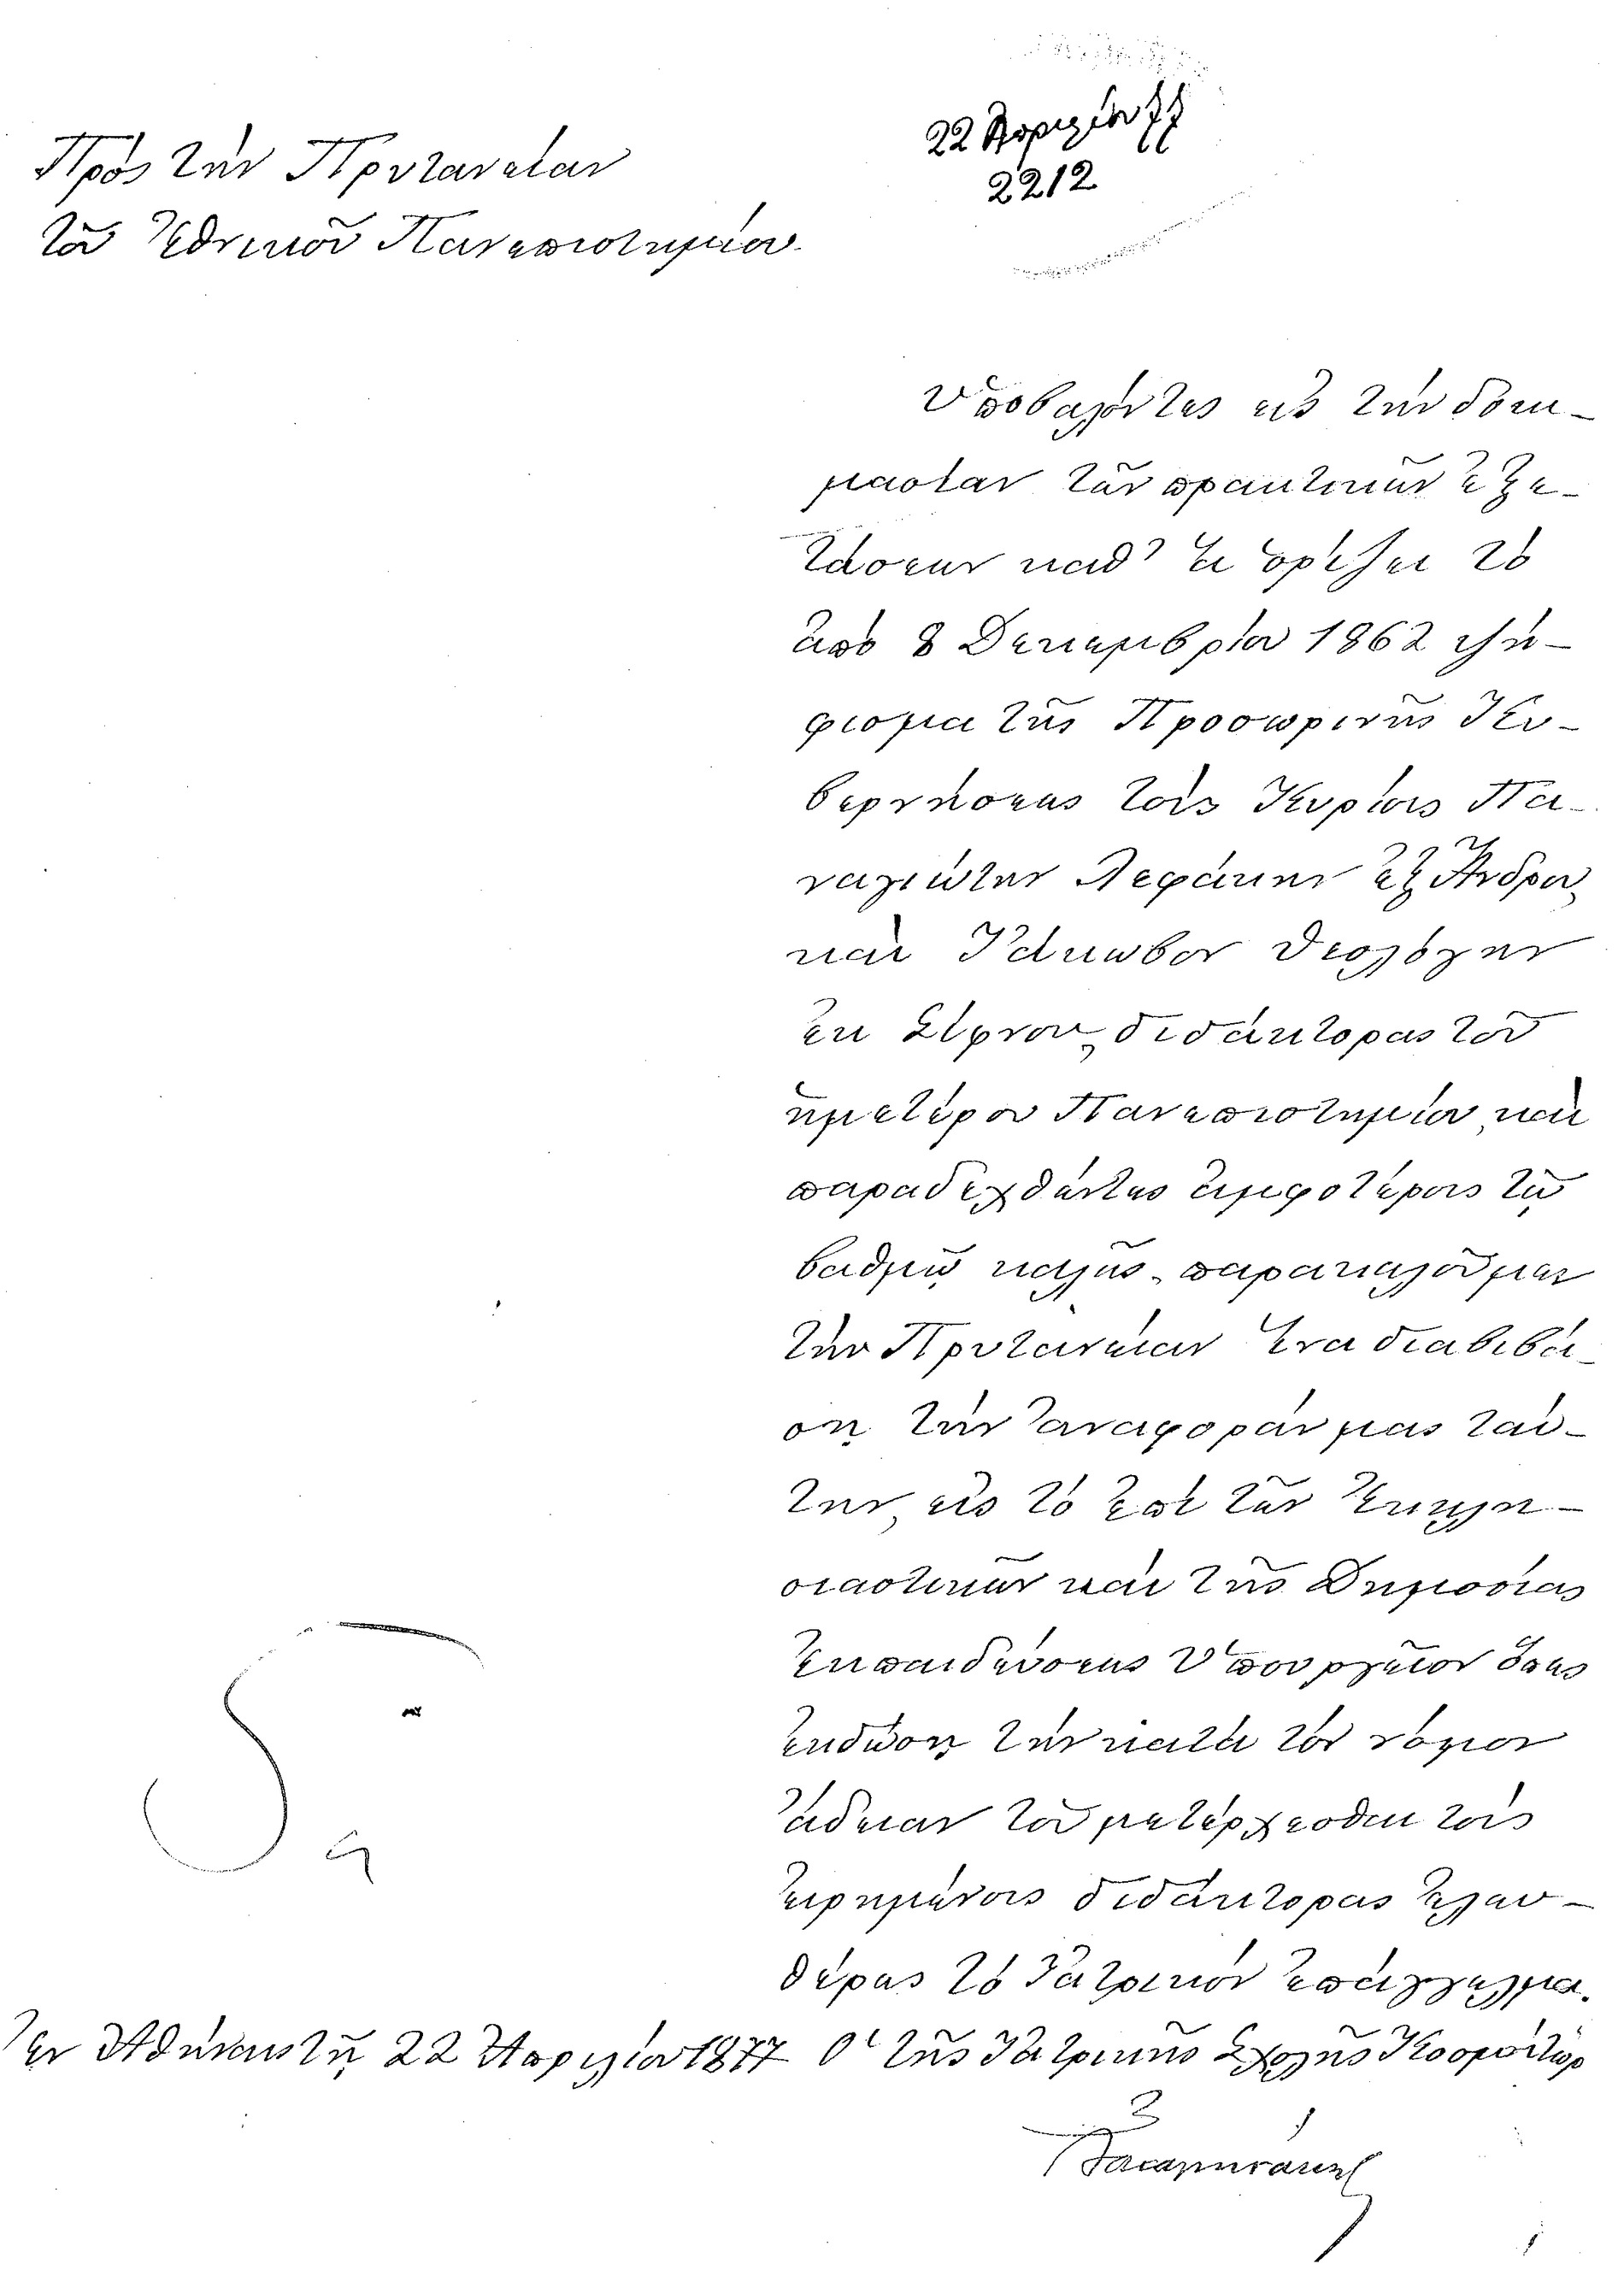 Πρὸς τὴν Πρυτανείαν
τοῦ Ἐθνικοῦ Πανεπιστημίου.
22 Ἀπριλίου 77
2212
Ὑποβαλόντες εἰς τὴν δοκι-
μασίαν τῶν πρακτικῶν ἐξε-
τάσεων καθ' ἃ ὁρίζει τὸ
ἀπὸ 8 Δεκεμβρίου 1862 ψή-
φισμα τῆς Προσωρινῆς Κυ-
βερνήσεως τοὺς Κυρίους Πα-
ναγιώτην Λεκάκην ἐξ Ἄνδρου,
καὶ Ἰάκωβον
ἐκ διδάκτορας τοῦ
ἡμετέρου Πανεπιστημίου καὶ
παραδεχθέντες ἀμφοτέρους τῷ
βαθμῷ καλῶς παρακαλοῦμεν
τὴν Πρυτανείαν ἵνα διαβιβά-
σῃ τὴν ἀναφοράν μας ταύ-
την εἰς τὸ ἐπὶ τῶν Ἐκκλη-
σιαστικῶν καὶ τῆς Δημοσίας
Ἐκπαιδεύσεως Ὑπουργεῖον ὅπως
ἐκδώσῃ τὴν κατὰ τὸν νόμον
ἄδειαν τοῦ μετέρχεσθαι τοὺς
εἰρημένους διδάκτορας ἐλευ-
θέρως τὸ Ἰατρικὸν ἐπάγγελμα.
Ἐν Ἀθήναις τῇ 22 Ἀπριλίου 1877 Ὁ τῆς Ἰατρικῆς Σχολῆς Κοσμήτωρ